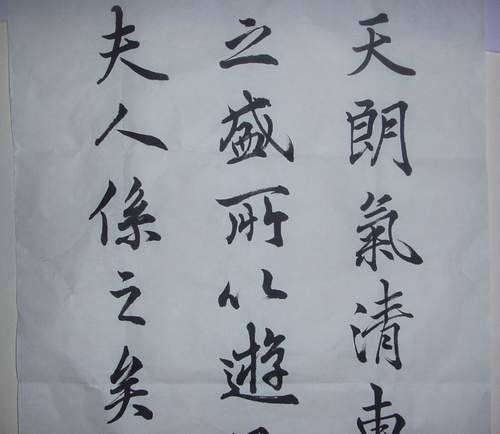 天朗氣清
之盛所以遊
夫人係之矣